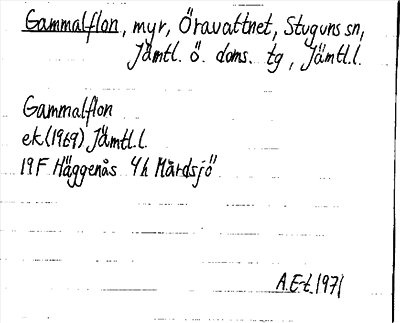 Gammalflon, myr, Öravattnet, Stuguns sn,
Jämtl. ö. doms. tg, Jämtl.l.
Gammalflon
ek.(1969) Jämtl.l.
19F Häggenås 4h Mårdsjö
A.E-t.1971